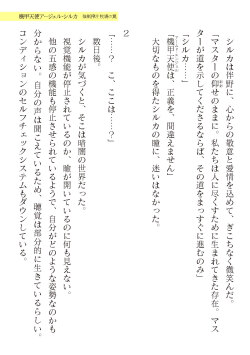 機甲天使アージェル・シルカ
シルカは伴野に、心からの敬意と愛情を込めて、ぎこちなく微笑んだ。
「マスターの仰せのままに。私たちは人に尽くすために生まれてきた存在。マス
ターが道を示してくださるならば、その道をまっすぐに進むのみ」
「シルカ……」
「機甲天使は、正義を、間違えません」
大切なものを得たシルカの瞳に、迷いはなかった。
2
「……？　こ、ここは……？」
数日後。
シルカが気づくと、そこは暗闇の世界だった。
視覚機能が停止されているのか、瞼が開いているのに何も見えない。
他の五感の機能も停止させられているようで、自分がどのような姿勢なのかも
分からない。自分の声は聞こえているため、聴覚は部分的に生きているらしい。
コンディションのセルフチェックシステムもダウンしている。